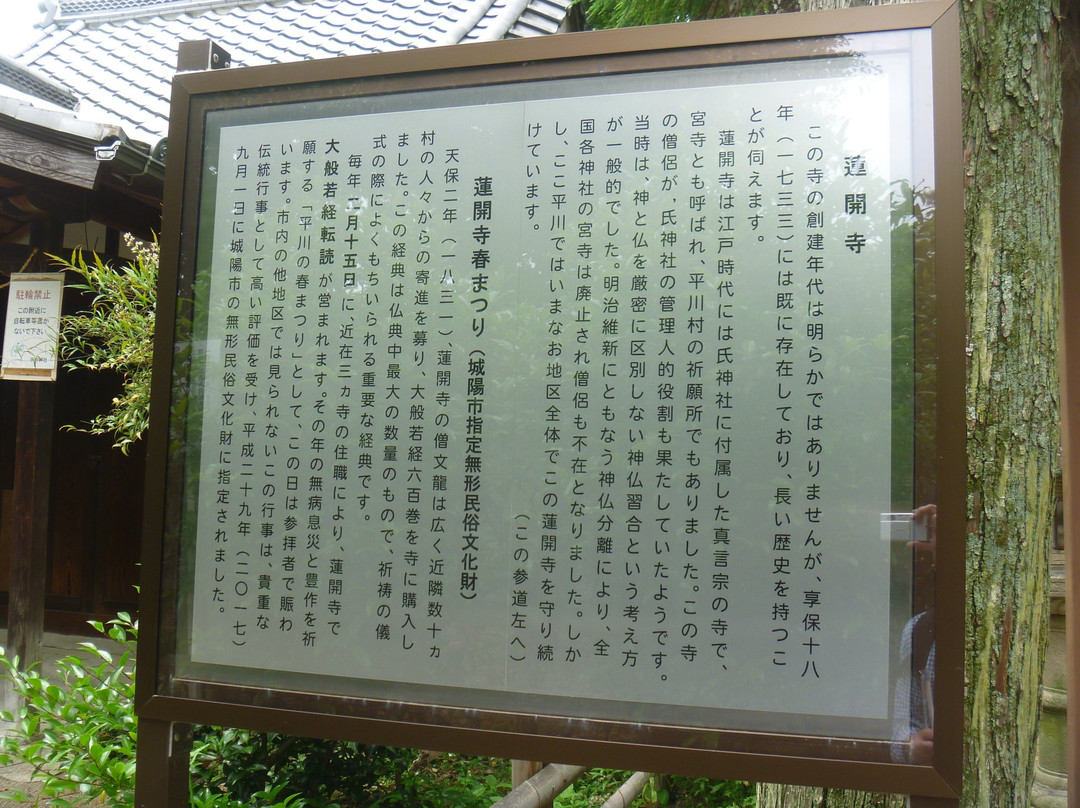 蓮開寺
この寺の創建年代は明らかではありませんが、享保十八
年（一七三三）には既に存在しており、長い歴史を持つこ
とが伺えます。
蓮開寺は江戸時代には氏神社に付属した真言宗の寺で、
宮寺とも呼ばれ、平川村の祈願所でもありました。この寺
の僧侶が、氏神社の管理人的役割も果たしていたようです。
当時は、神と仏を厳密に区別しない神仏習合という考え方
が一般的でした。明治維新にともなう神仏分離により、全
国各神社の宮寺は廃止され僧侶も不在となりました。しか
し、ここ平川ではいまなお地区全体でこの蓮開寺を守り続
けています。
（この参道左へ）
蓮開寺春まつり（城陽市指定無形民俗文化財）
天保二年（一八三一）、蓮開寺の僧文龍は広く近隣数十ヵ
村の人々からの寄進を募り、大般若経六百巻を寺に購入し
ました。この経典は仏典中最大の数量のもので、祈祷の儀
式の際によくもちいられる重要な経典です。
毎年二月十五日に、近在三ヵ寺の住職により、蓮開寺で
大般若経転読が営まれます。その年の無病息災と豊作を祈
願する「平川の春まつり」として、この日は参拝者で賑わ
います。市内の他地区では見られないこの行事は、貴重な
伝統行事として高い評価を受け、平成二十九年（二〇一七）
九月一日に城陽市の無形民俗文化財に指定されました。
駐輪禁止
この附近に
自転車等置か
ないで下さい